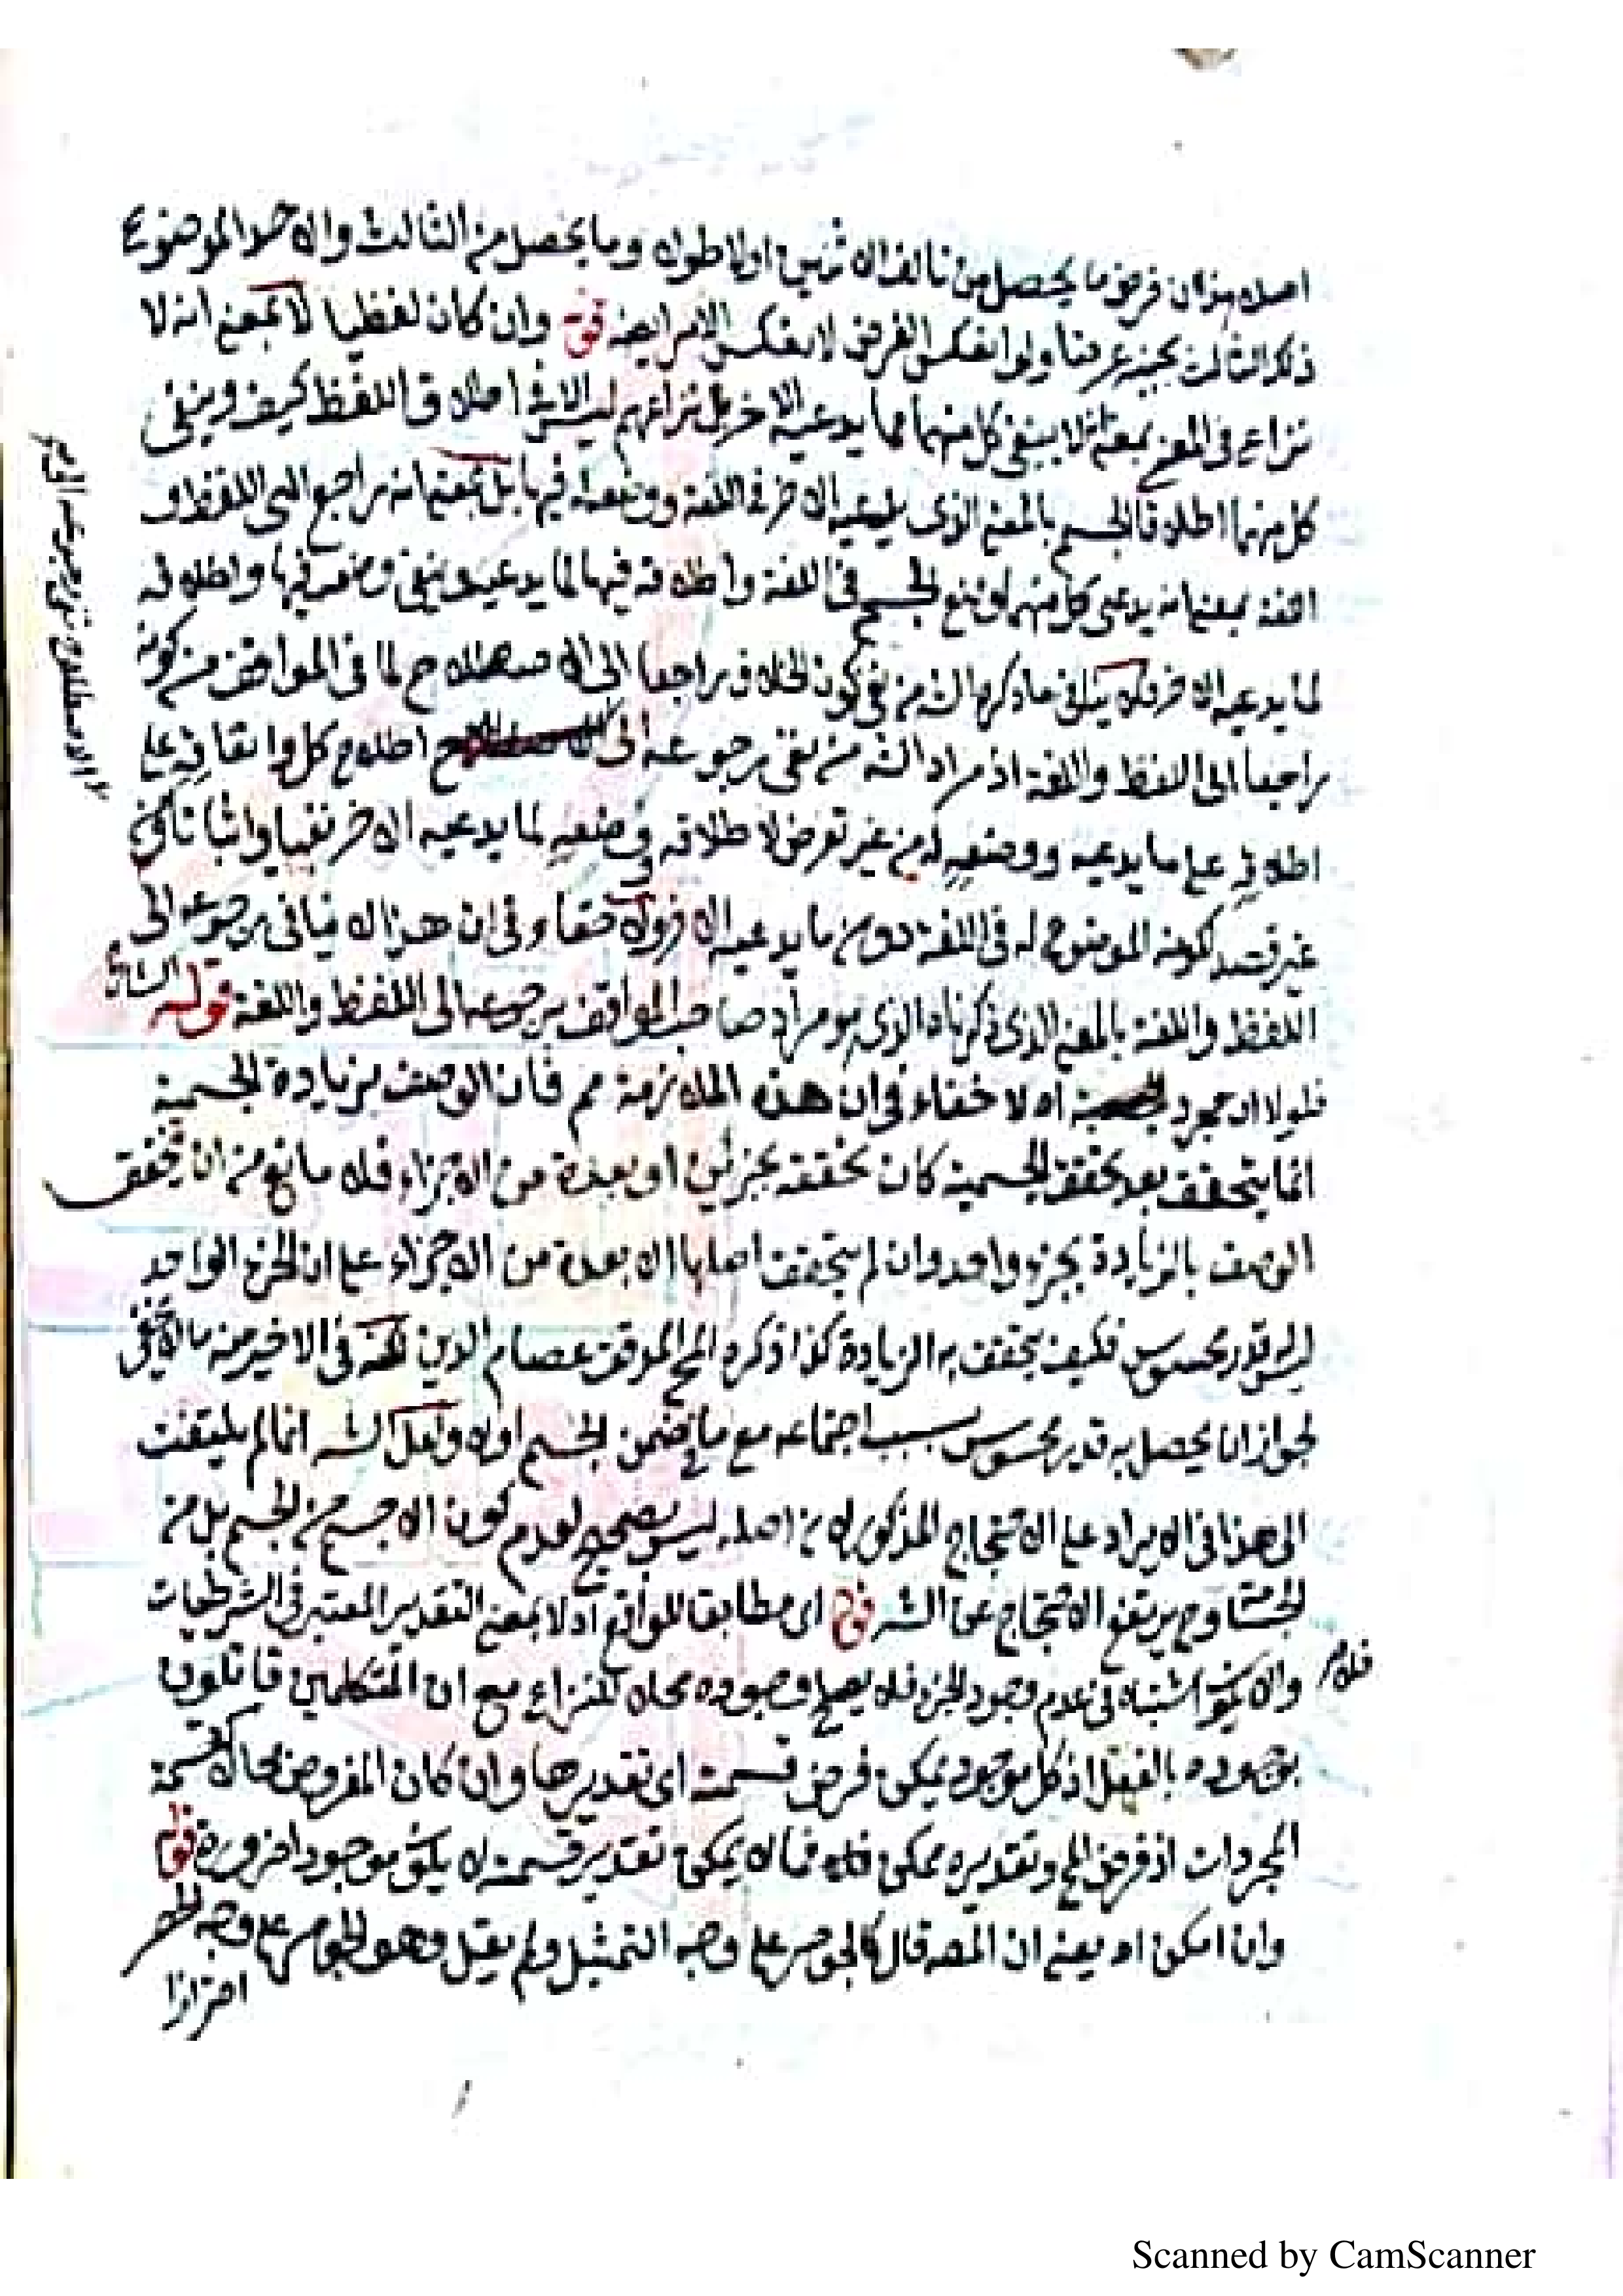 اصلا هذا ان فرض ما يحصل من تألف الاثنين اولا طولا وما يحصل من الثالث والاخر الموضوع
ذكر الثالث بجنبه عرضا ولو انعكس الفرض لانعكس الامر ايضا قوله وان كان لفظيا لا بمعنى انه لا
نزاع في المعنى بمعنى انه لا ينفي كل منهما ما يدعيه الاخر بل نزاعهم ليس الا في اطلاق اللفظ كيف وينفي
كل منهما اطلاق الجسم بالمعنى الذي يدعيه الاخر في اللغة ووضعه فيها بل بمعنى انه راجع الى اللفظ و
اللغة بمعنى انه يدعي كل منهما وضع الجسم في اللغة واطلاقه فيها لما يدعيه وينفي وضعه فيها واطلاقه
لما يدعيه الاخر فلا ينافي ما ذكره الشه من نفي كون الخلاف راجعا الى الاصطلاح لما في المواقف من كونه
راجعا الى اللفظ واللغة اذ مراد الشه من نفي رجوعه الى اطلاع كل واتفاقه على
اطلاقه على ما يدعيه ووضعه له من غير تعرض لاطلاقه ووضعه لما يدعيه الاخر نفيا واثباتا
غير قصد لكونه الموضوع له في اللغة دون ما يدعيه الاخر ولا خفاء في ان هذا لا ينافي رجوعه الى
اللفظ واللغة بالمعنى الذي ذكرناه الذي هو مراد صاحب المواقف برجوعه الى اللفظ واللغة قوله
فلولا ان مجرد اه لا خفاء في ان هذه الملازمة مم فان الوصف بزيادة الجسمية
انما يتحقق بعد تحقق الجسمية كان تحققه بجزئين او بعدة من الاجزاء فلا مانع من ان يتحقق
الوصف بالزيادة بجزء واحد وان لم يتحقق اصلها الا بعدة من الاجزاء على ان الجزء الواحد
ليس له قدر محسوس فكيف يتحقق به الزيادة كذا ذكره المحقق عصام الدين لكنه في الاخير منه ما لا يخفى
لجواز ان يحصل به قدر محسوس بسبب اجتماعه مع ما يتضمن الجسم اولا ولعل الشه انما لم يلتفت
الى هذا في الايراد على الاحتجاج المذكور لان اصله ليس بصحيح لعدم كون الاجسم من الجسم بل من
الجسامة وح يرتفع الاحتجاج عن الشه قوله اي مطابقا للواقع اه لا بمعنى التقدير المعتبر في الشرطيات
والا يكون اشتباه في عدم وجود الجزء فلا يصح وجوده محلا للنزاع مع ان المتكلمين قائلون
بوجوده بالفعل اذ كل موجود يمكن فرض قسمته اي تقديرها وان كان المفروض محالا كقسمة
المجردات اذ فرض المح وتقديره ممكن فما لا يمكن تقدير قسمته لا يكون موجودا ضرورة قوله
وان امكن اه يعني ان المصه قال كالجوهر على وجه التمثيل ولم يقل وهو الجوهر على وجه الحصر
احترازا
Scanned by CamScanner